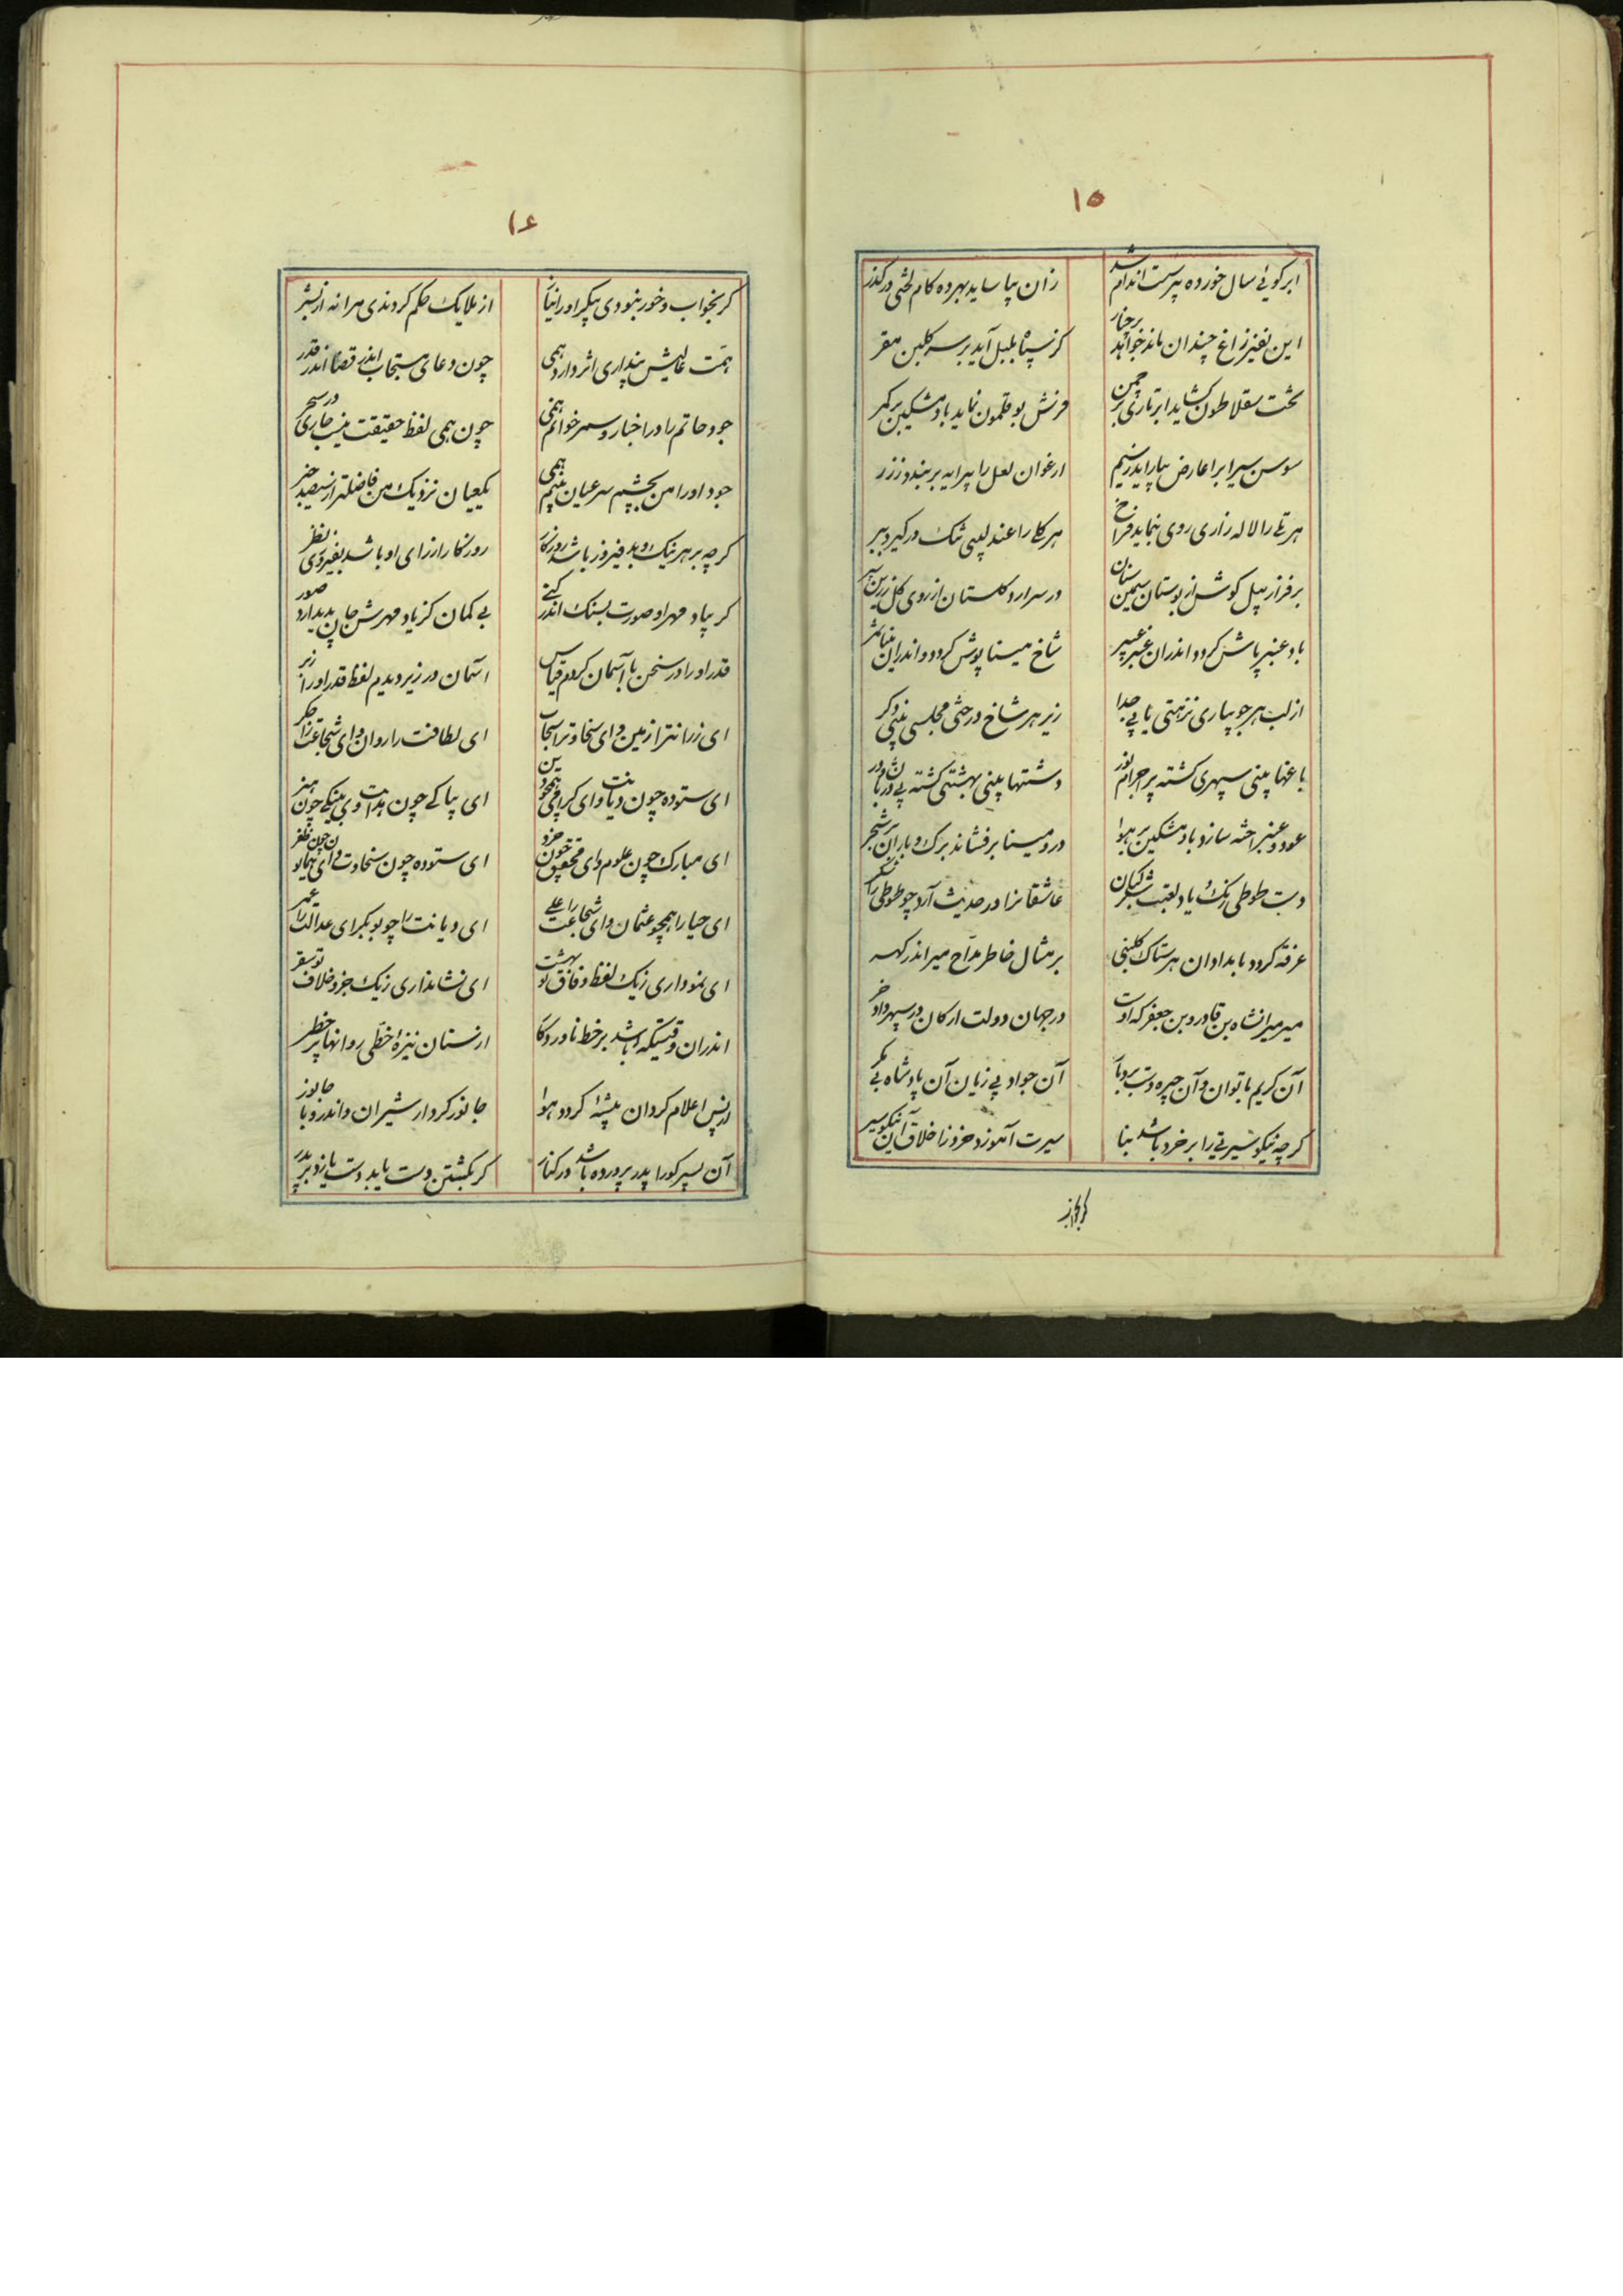 ۱۵
ابر گویی سال خورده پیر سست اندام شد زان بیاساید بهر ده گام لختی در گذر
این نفیر زاغ چندان ماند خواهد بر چنار کز سپاه بلبل آید بر سر گلبن مقر
تخت سقلاطون گشاید ابر تاری بر چمن فرش بوقلمون نماید باد مشکین بر کمر
سوسن سیراب را عارض بیاراید نسیم ارغوان لعل را پیرایه بربندد ز زر
هر تلی را لاله زاری روی بنماید فراخ هر گلی را عندلیبی تنگ در گیرد ببر
برفراز پیل گوش از بوستان سیمین سنان در سر آرد گلستان از روی گل زرین سپر
باد عنبر پاش گردد اندران عنبر عبیر شاخ مینا پوش گردد و اندران مینا
از لب هر جویباری نزهتی یابی جدا زیر هر شاخ درختی مجلسی بینی دگر
باغها بینی سپهری گشته پر اجرام نور دشتها بینی بهشتی گشته بی دربان و در
عود و عنبر سازد باد مشکین بر هوا در و مینا برفشاند برگ و باران بر شجر
دست طوطی رنگ یاد لعبت شکر عاشقانرا در حدیث آرد چو طوطی را شکر
غرقه گردد بامدادان هر ستاک گلبنی بر مثال خاطر مداح میر اندر گهر
میر میرانشاه بن قاورد بن جعفر که اوست در جهان دولت ارکان در سپهر داد خور
آن کریم با توان و آن چیره دست بردبار آن جواد بی زیان آن پادشاه بی مکر
گرچه نیکو سیرتی را بر خرد باشد بنا سیرت آموزد خرد ز اخلاق آن نیکو سیر
گر بخواب
۱۶
گر بخواب و خور نبودی پیکر او را نیاز از ملایک حکم کردندی مرا نه از بشر
همت عالیش پنداری اثر دارد همی چون دعای مستجاب اندر قضا اندر قدر
جود حاتم را در اخبار و سمر خوانم همی چون همی لفظ حقیقت
جود او را من بچشم سر عیان بینم همی یک عیان نزدیک من فاضلتر از سیصد خبر
گرچه بر هر نیک و بد فیروز باشد روزگار روزگار از رای او باشد بفیروزی نظر
گر بیاد مهر او صورت بسنگ اندر کنی بی گمان کز یاد مهرش جان پدید آرد صور
قدر او را در سخن با آسمان کردم قیاس آسمان در زیر دیدم لفظ قدر او را زبر
ای زرانت را زمین و ای سخاوت را سحاب ای لطافت را روان و ای شجاعت را جگر
ای ستوده چون دیانت و ای گرامی همچو دین ای بپاکی چون بدایت وی بنیکی چون هنر
ای مبارک چون علوم و ای محقق چون خرد ای ستوده چون سخاوت و ای همایون چون ظفر
ای حیا را همچو عثمان و ای شجاعت را علی ای دیانت را چو بوبکر ای عدالت را عمر
ای نموداری ز یک لفظ وفاق تو بهشت ای نشانداری ز یک جزو خلاف تو سقر
اندران وقتیکه باشد بر خط ناوردگاه از سنان نیزه خطی روانها پر خطر
از پس اعلام گردان بیشه گردد هوا جانور کردار شیران و اندرو با جانور
آن پسر کورا پدر پرورده باشد در کنار گر بکشتن دست یابد دست یازد بر پدر